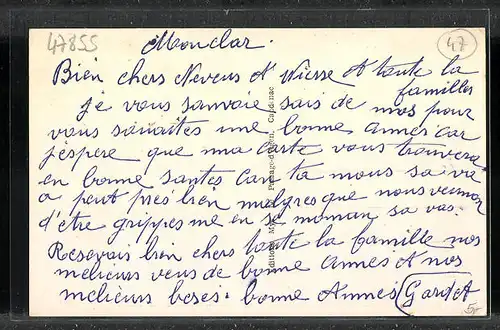 47855
47
Monclar.
Bien chers Neveus et Niesse et toute la
familles
Je vous sanvoie sais de mos pour
vous souaites une bonne annes car
j'espere que ma carte vous trouvera
en bonne santes car ta nous sa va
a peut pres bien malgres que nous venon
d'être grippes me en se moman sa vas.
Resevais bien chers toute la famille nos
melieurs veus de bonne annes et nos
melieurs beses. bonne Annes Gardet
Editions
Capdenac